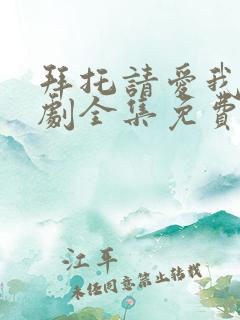 拜托請愛我
劇全集免費
江平
未经同意禁止转载